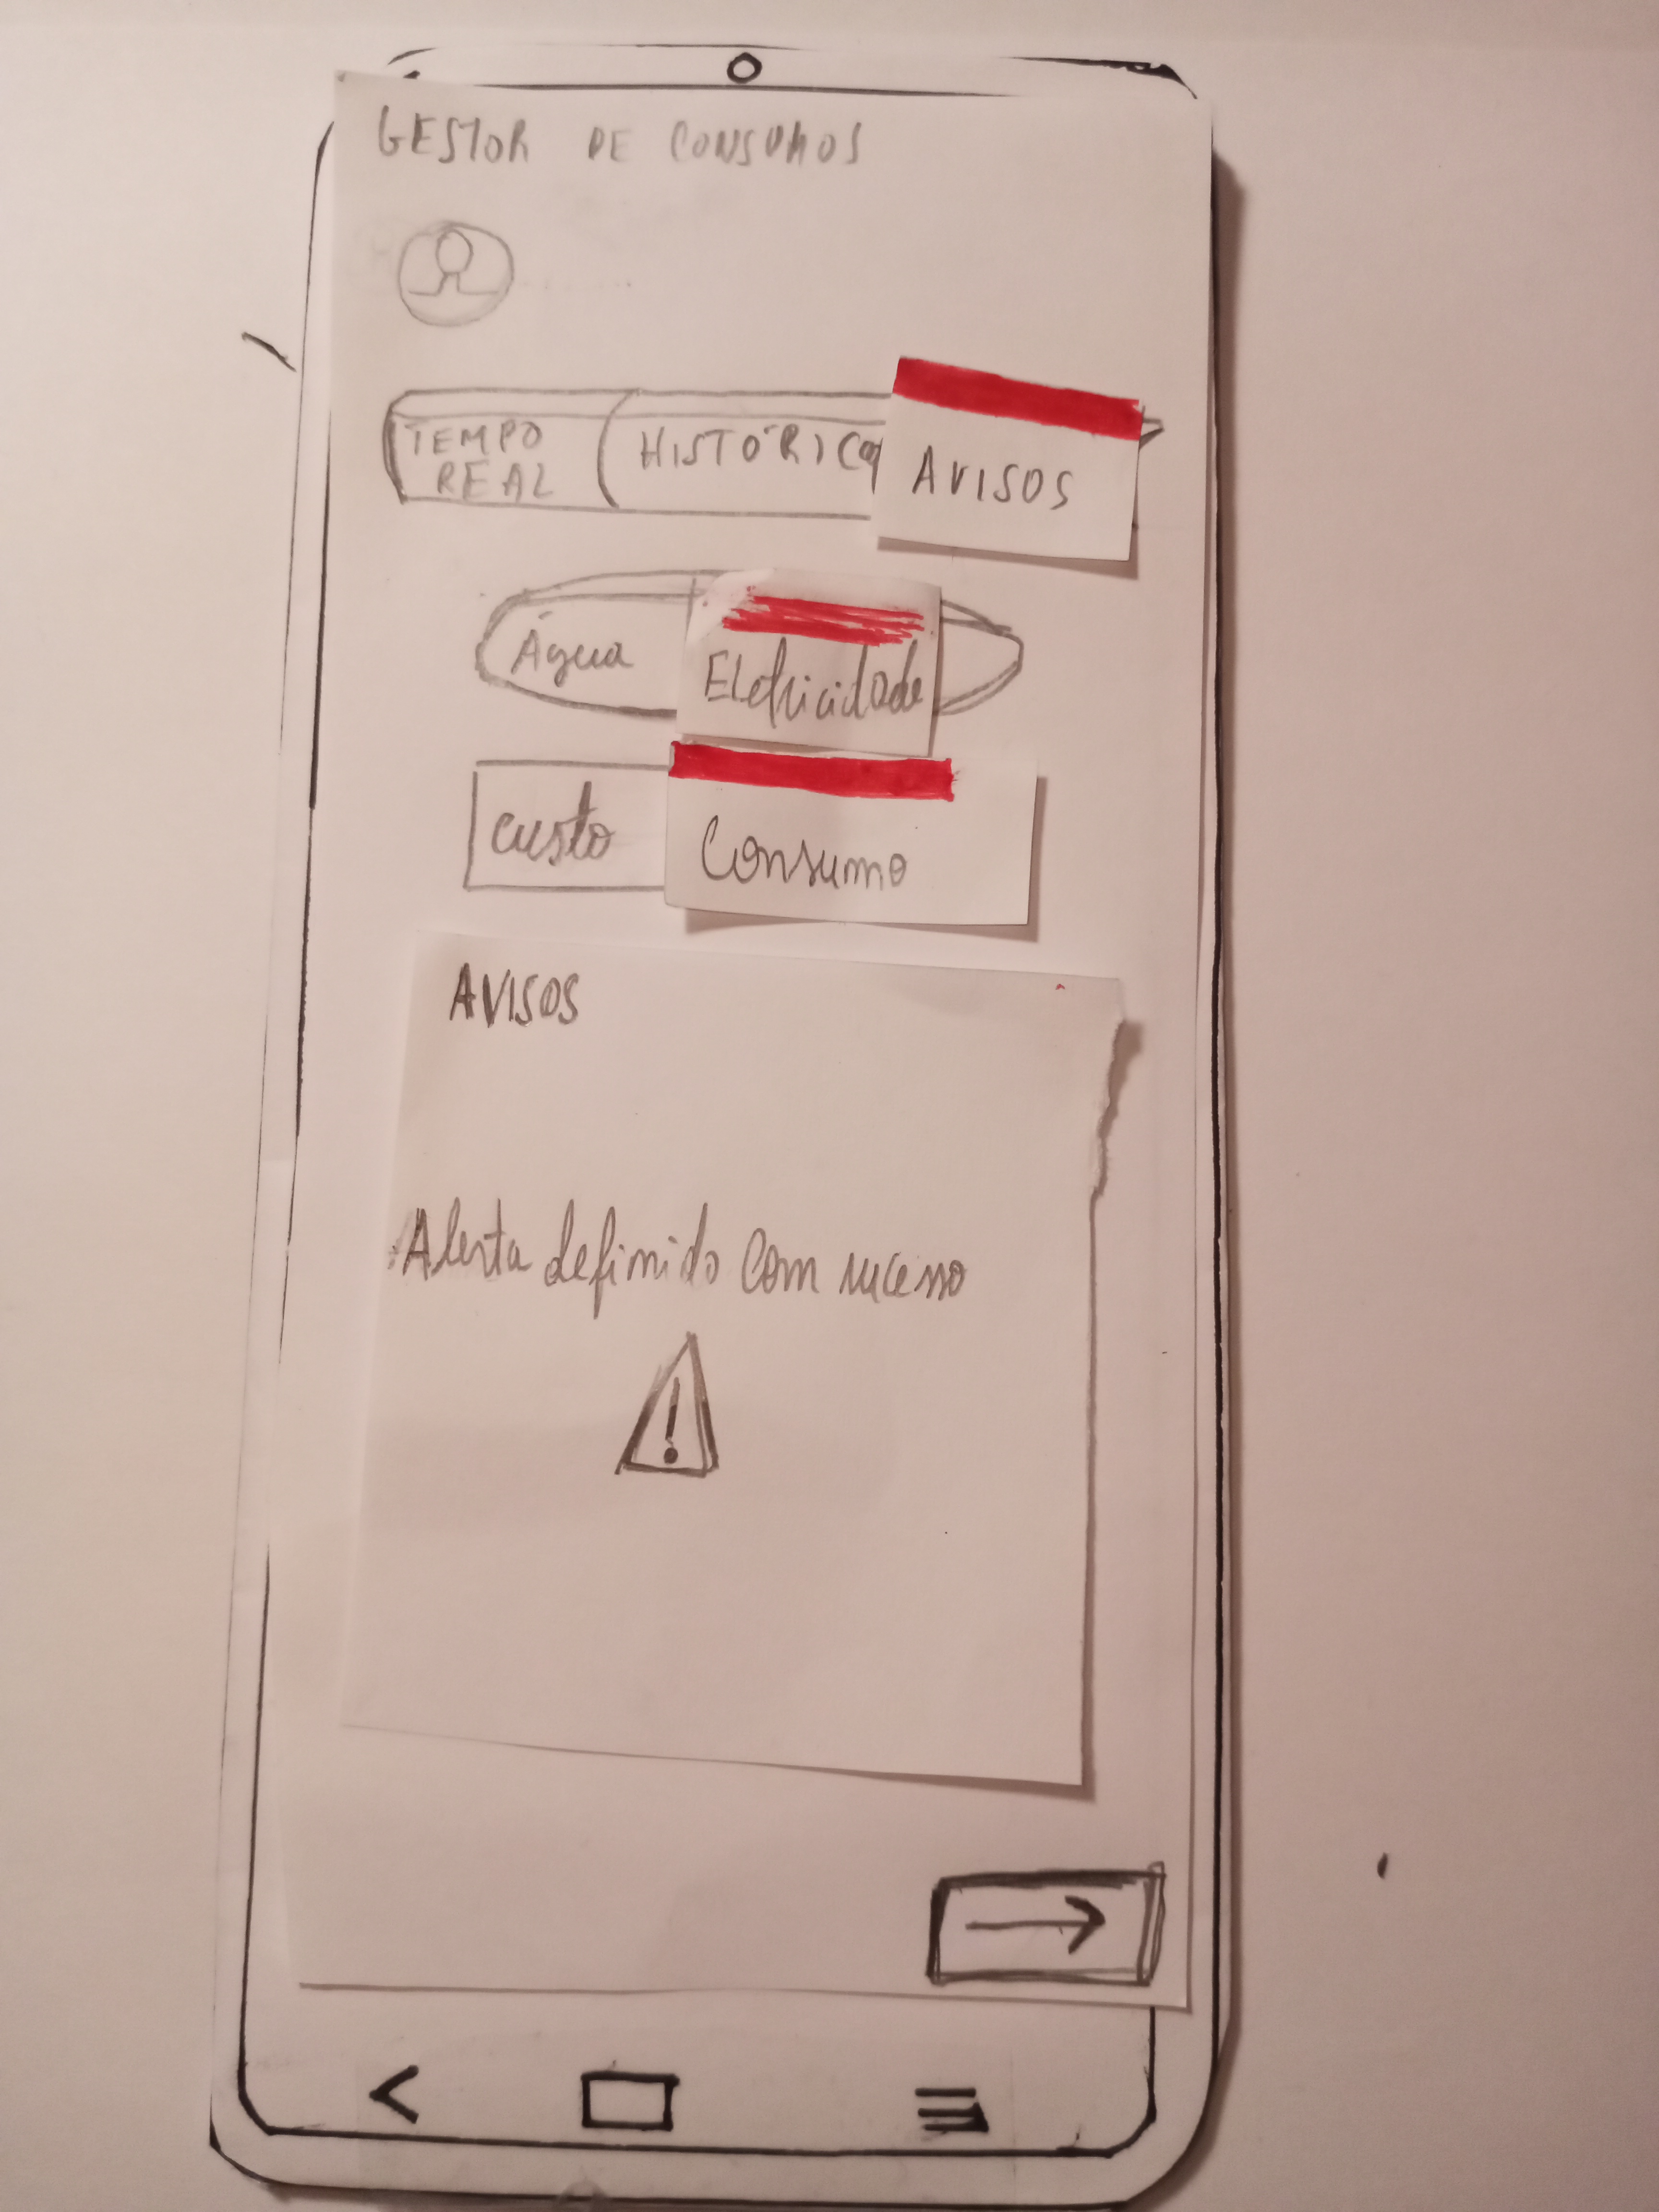 GESTOR DE CONSUMOS
TEMPO
REAL
HISTÓRICO
AVISOS
Água
Eletricidade
custo
Consumo
AVISOS
Alerta definido com sucesso
!